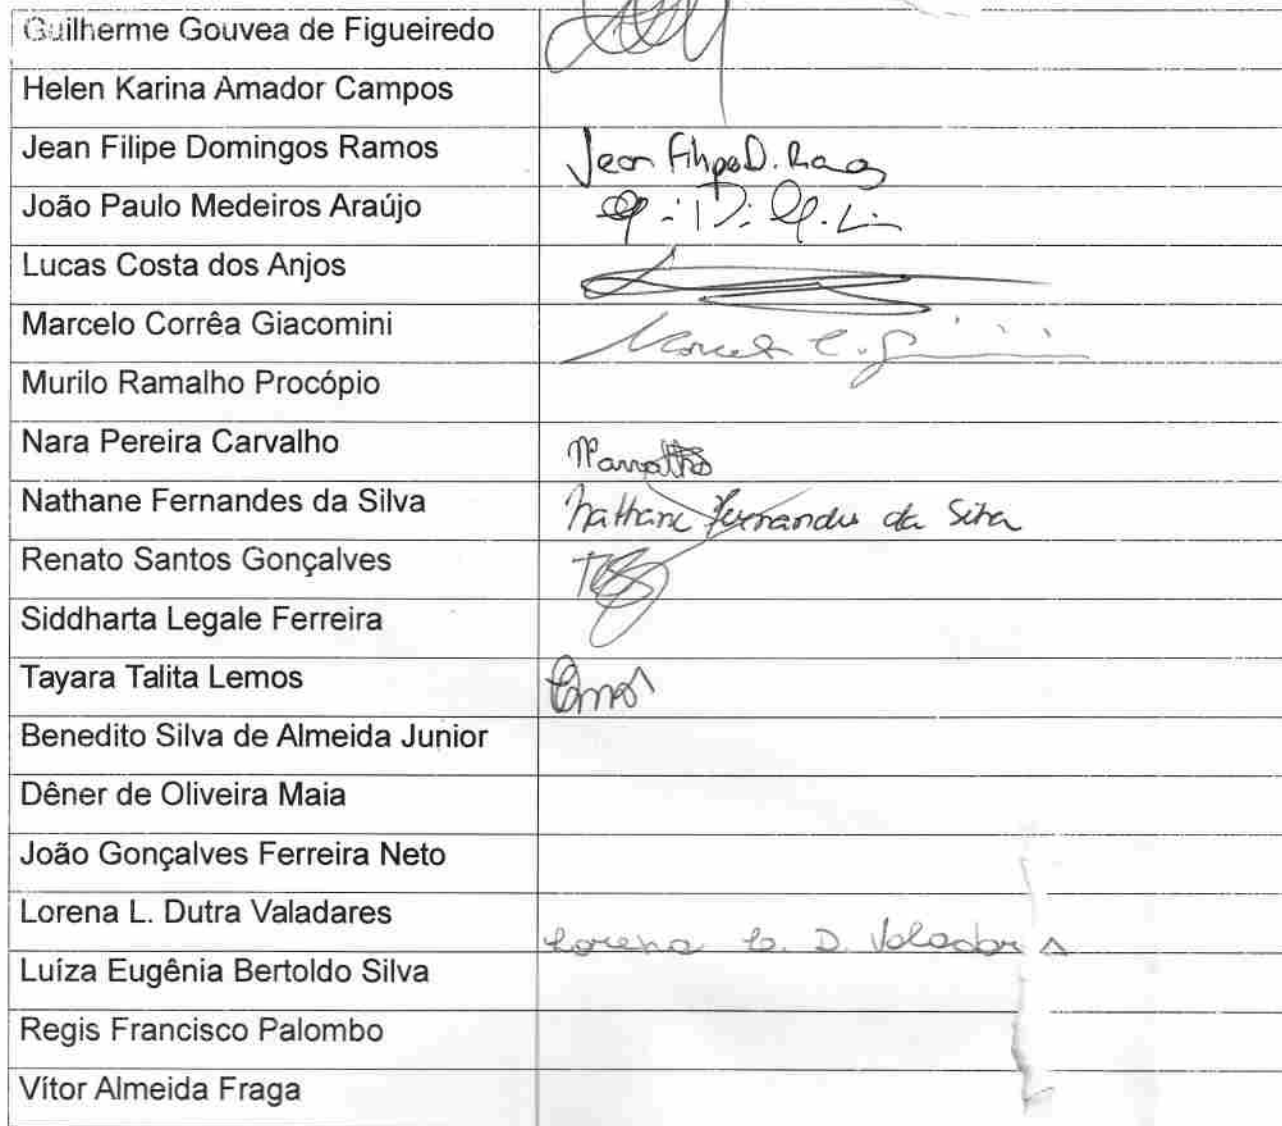 Guilherme Gouvea de Figueiredo
Helen Karina Amador Campos
Jean Filipe Domingos Ramos Jean Filipe D. Ramos
João Paulo Medeiros Araújo
Lucas Costa dos Anjos
Marcelo Corrêa Giacomini Marcelo C.
Murilo Ramalho Procópio
Nara Pereira Carvalho
Nathane Fernandes da Silva Nathane Fernandes da Silva
Renato Santos Gonçalves
Siddharta Legale Ferreira
Tayara Talita Lemos
Benedito Silva de Almeida Junior
Dêner de Oliveira Maia
João Gonçalves Ferreira Neto
Lorena L. Dutra Valadares Lorena L. D. Valadares
Luíza Eugênia Bertoldo Silva
Regis Francisco Palombo
Vítor Almeida Fraga